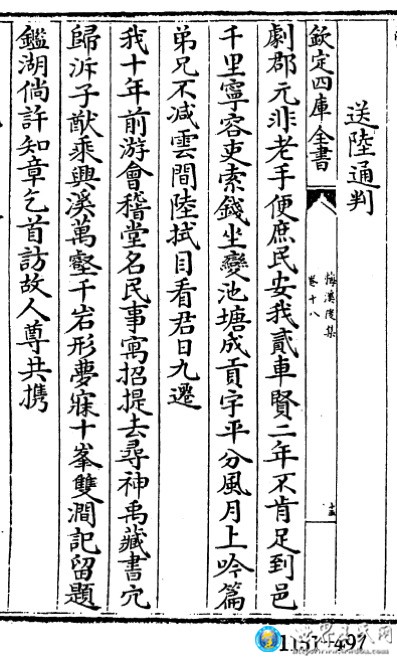 送陸通判
欽定四庫全書
梅溪後集
卷十八
劇郡元非老手便庶民安我貳車賢二年不肯足到邑
千里寧容吏索錢坐變池塘成貢字平分風月上吟篇
弟兄不減雲間陸拭目看君日九遷
我十年前游會稽堂名民事寓招提去尋神禹藏書穴
歸泝子猷乘興溪萬壑千岩形夢寐十峯雙澗記留題
鑑湖倘許知章乞首訪故人尊共携
1151-497